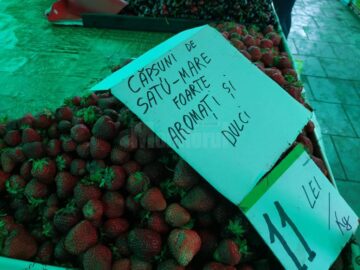 CĂPSUNI DE
SATU-MARE
FOARTE
AROMAȚI ȘI
DULCI
11 LEI/Kg